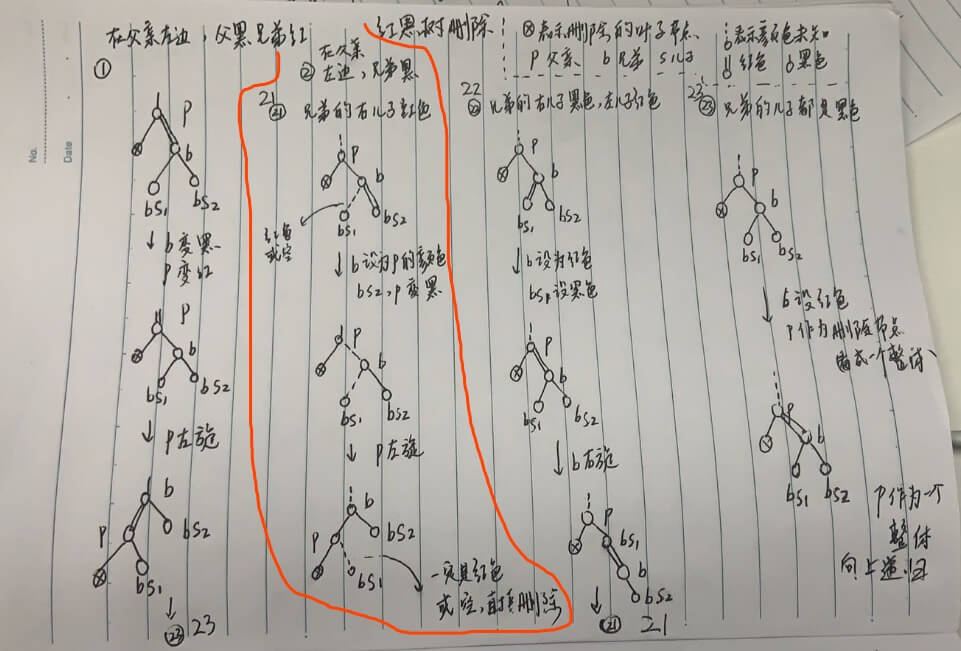 在父亲左边,父黑兄弟红
①
P
b
bS1
bS2
↓ b变黑
P变红
P
b
bS1
bS2
↓ P左旋
b
P
bS2
bS1
↓
㉓ 23
No.
Date
红黑树删除
ⓧ表示删除的叶子节点
P父亲 b兄弟 S儿子
表示颜色未知
红色 黑色
在父亲
② 左边,兄弟黑
21
㉑ 兄弟的右儿子红色
P
b
bS1
bS2
红色
或空
↓ b设为P的颜色
bS2,P变黑
P
b
bS1
bS2
↓ P左旋
b
P
bS2
bS1
一定是红色
或空,直接删除
22
㉒ 兄弟的右儿子黑色,左儿子红色
P
b
bS1
bS2
↓ b设为红色
bS1设黑色
P
b
bS1
bS2
↓ b右旋
P
bS1
b
bS2
↓
㉑ 21
23
㉓ 兄弟的儿子都是黑色
P
b
bS1
bS2
↓ b设红色
P作为删除节点
看成一个整体
P
b
bS1
bS2
P作为一个
整体
向上递归